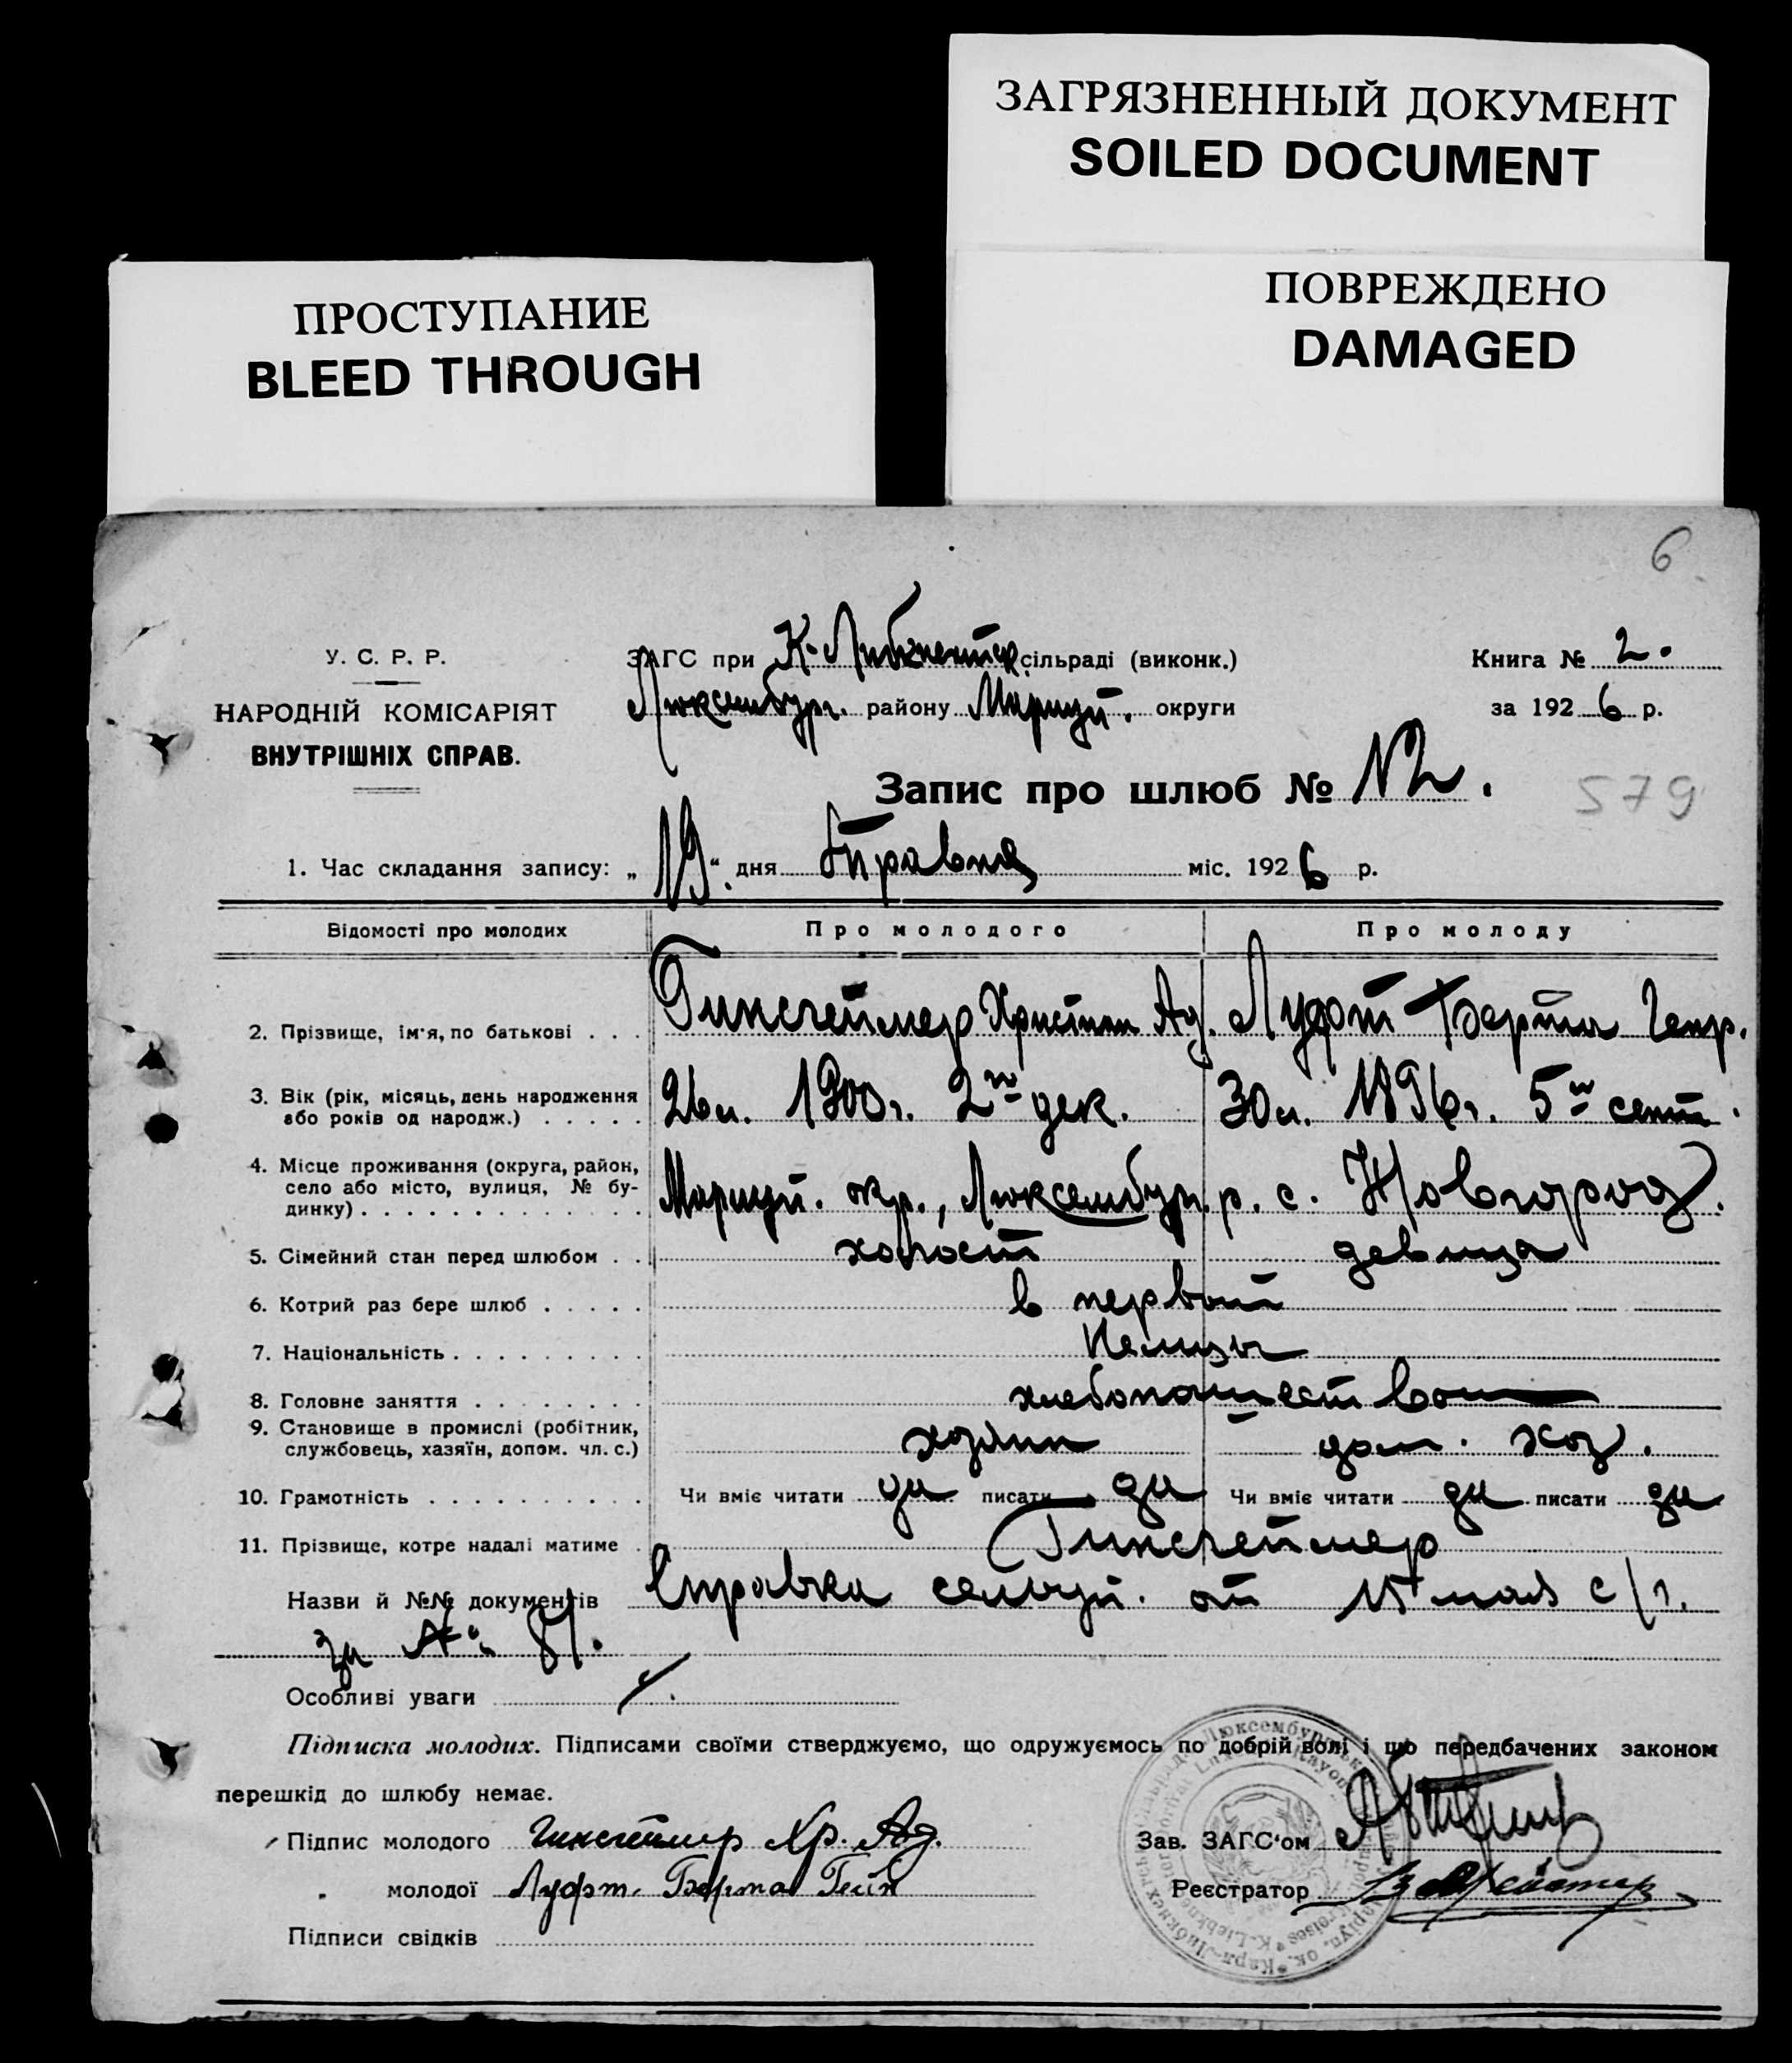 ЗАГРЯЗНЕННЫЙ ДОКУМЕНТ
SOILED DOCUMENT
ПРОСТУПАНИЕ
BLEED THROUGH
ПОВРЕЖДЕНО
DAMAGED
6
У. С. Р. Р.
НАРОДНІЙ КОМІСАРІЯТ
ВНУТРІШНІХ СПРАВ.
ЗАГС при К-Либкнехтск. сільраді (виконк.)
Люксембург. району Мариуп. округи
Книга № 2.
за 1926 р.
Запис про шлюб № 12.
579
1. Час складання запису: „19“ дня Травня міс. 1926 р.
Відомості про молодих Про молодого Про молоду
2. Прізвище, ім'я, по батькові . . . Гинсгеймер Христиан Ад. Луфт Берта Генр.
3. Вік (рік, місяць, день народження 26 л. 1900 г. 2го дек. 30 л. 1896 г. 5го сент.
або років од народж.) . . . . .
4. Місце проживання (округа, район,
село або місто, вулиця, № бу- Мариуп. окр., Люксембург. р. с. Новгород.
динку) . . . . . . . . . . . . .
5. Сімейний стан перед шлюбом . . холост девица
6. Котрий раз бере шлюб . . . . . в первый
7. Національність . . . . . . . . . Немцы
8. Головне заняття . . . . . . . . хлебопашество
9. Становище в промислі (робітник,
службовець, хазяїн, допом. чл. с.) хозяин дом. хоз.
10. Грамотність . . . . . . . . . . Чи вміє читати да писати да Чи вміє читати да писати да
11. Прізвище, котре надалі матиме . Гинсгеймер
Назви й №№ документів Справка сельуп. от 15 мая с/г.
за №: 81.
Особливі уваги
Підписка молодих. Підписами своїми стверджуємо, що одружуємось по добрій волі і що передбачених законом
перешкід до шлюбу немає.
Підпис молодого Гинсгеймер Хр. Ад.
„ молодої Луфт. Берта Генр
Підписи свідків
Зав. ЗАГС'ом
Реєстратор